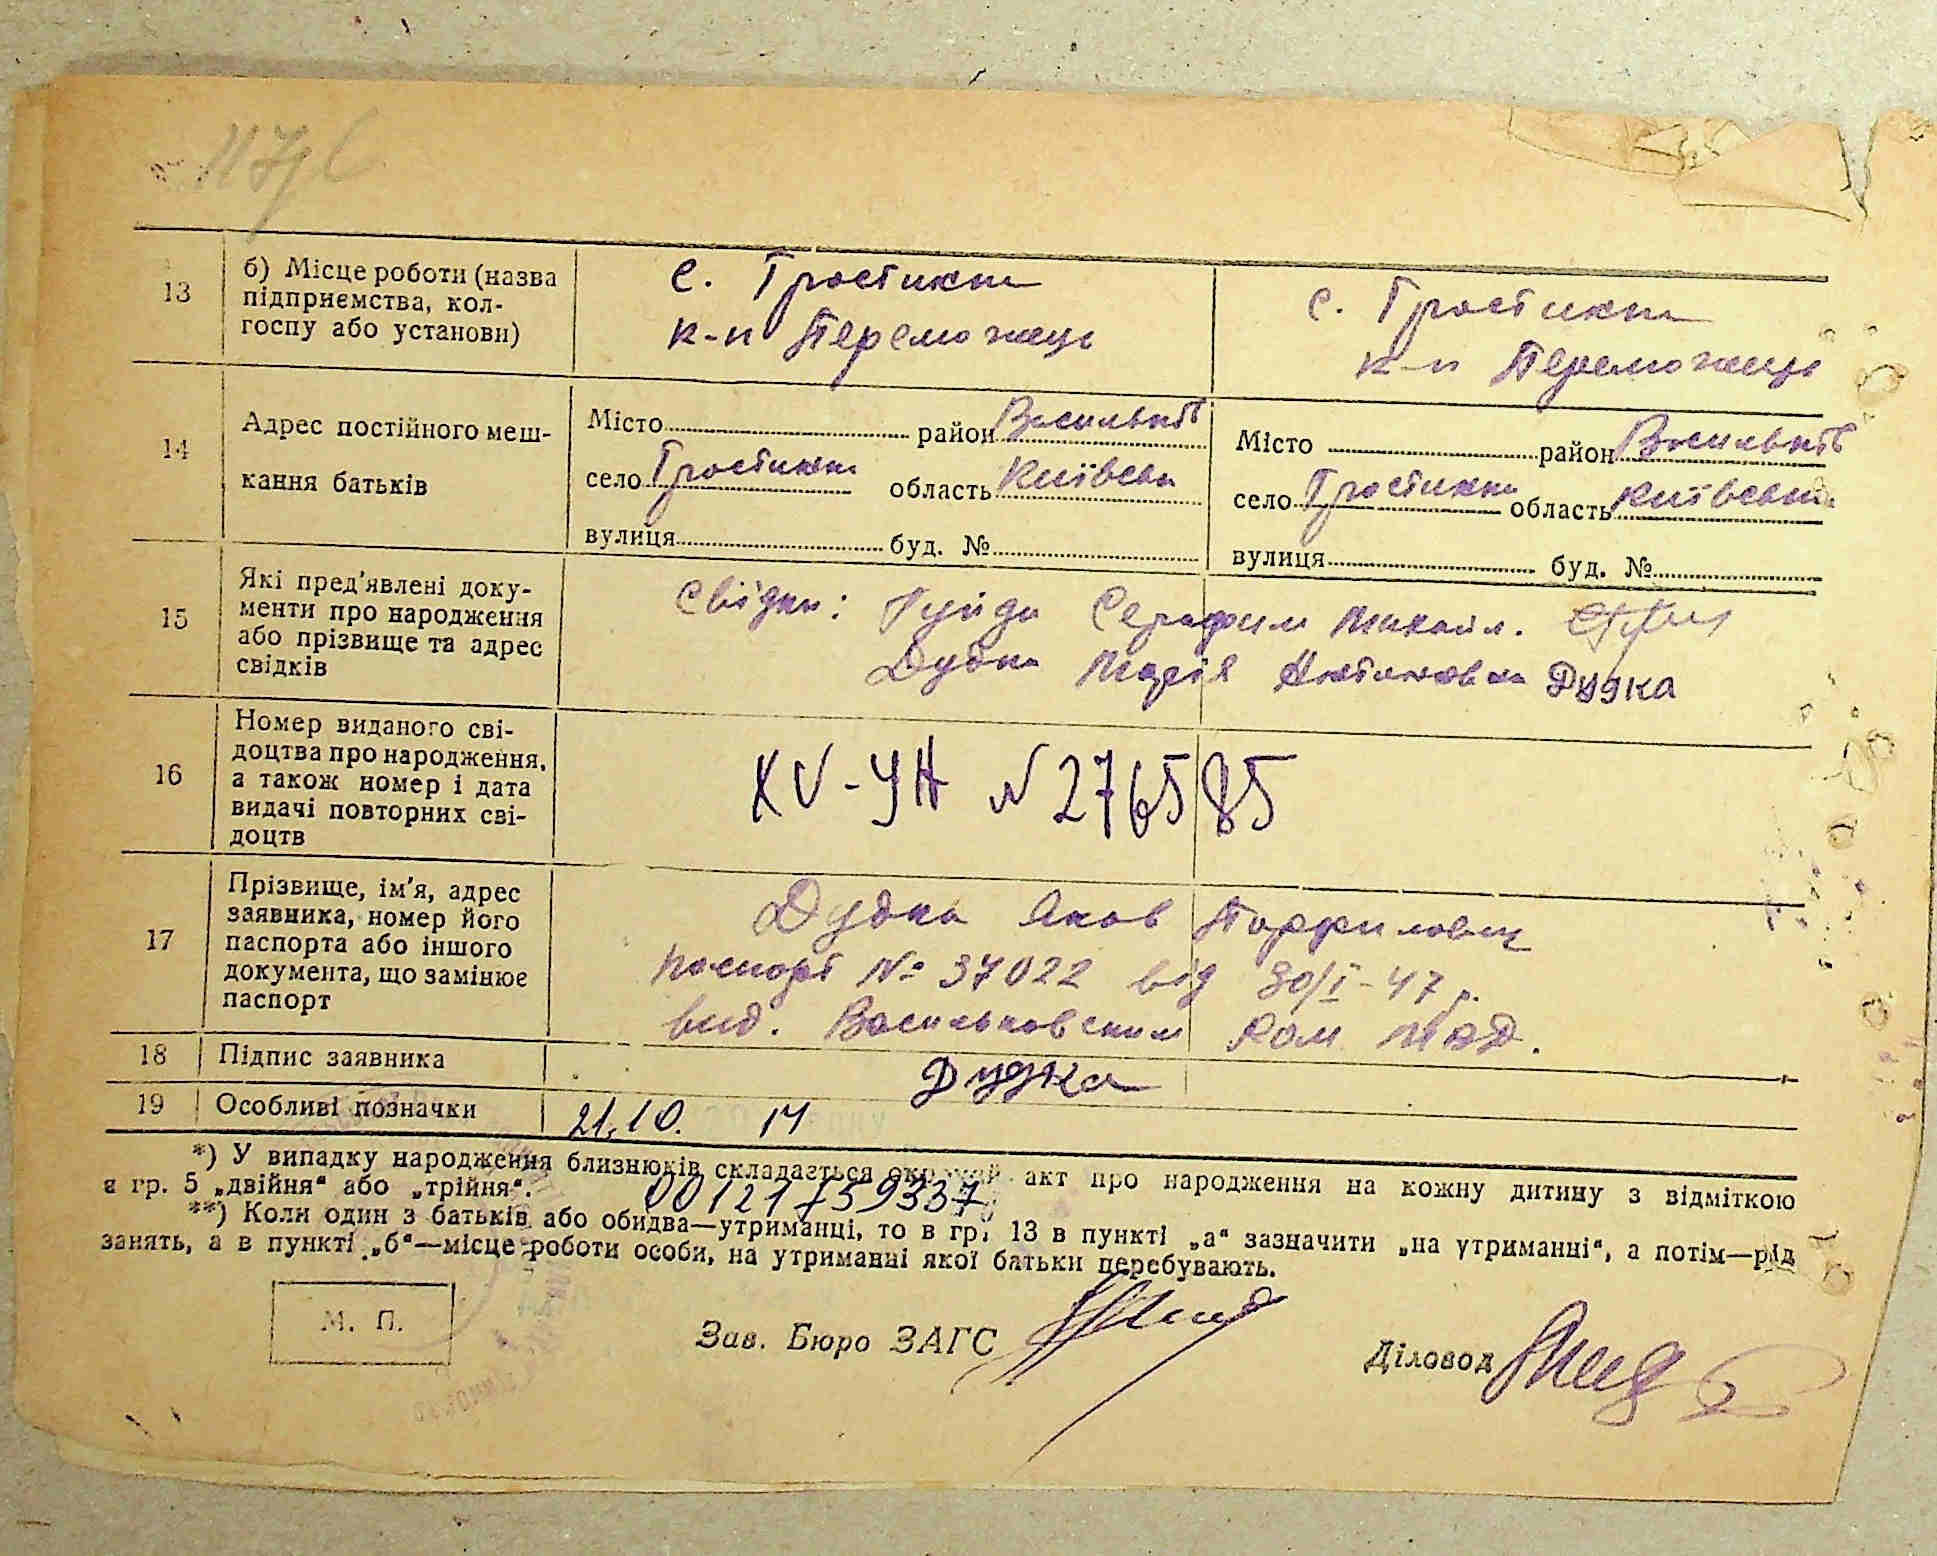 117 С
13
б) Місце роботи (назва
підприємства, кол-
госпу або установи)
с. Тростинка
к-п Переможець
с. Тростинка
к-п Переможець
14
Адрес постійного меш-
кання батьків
Місто район Васильків
село Тростинка область Київська
вулиця буд. №
Місто район Васильків
село Тростинка область Київська
вулиця буд. №
15
Які пред'явлені доку-
менти про народження
або прізвище та адрес
свідків
Свідки: Гуйда Серафим Михайл.
Дудка Марія Дудка
16
Номер виданого сві-
доцтва про народження,
а також номер і дата
видачі повторних сві-
доцтв
XV-УН N 276585
17
Прізвище, ім'я, адрес
заявника, номер його
паспорта або іншого
документа, що замінює
паспорт
Дудка Яков Порфилович
паспорт № 37022 від 30/I-47 р.
вид. Васильковским Ром МВД.
18
Підпис заявника
Дудка
19
Особливі позначки
21.10. 14
*) У випадку народження близнюків складається окремий акт про народження на кожну дитину з відміткою
в гр. 5 „двійня“ або „трійня“.
00121759337
**) Коли один з батьків або обидва—утриманці, то в гр. 13 в пункті „а“ зазначити „на утриманні“, а потім—рід
занять, а в пункті „б“—місце роботи особи, на утриманні якої батьки перебувають.
М. П.
Зав. Бюро ЗАГС
Діловод